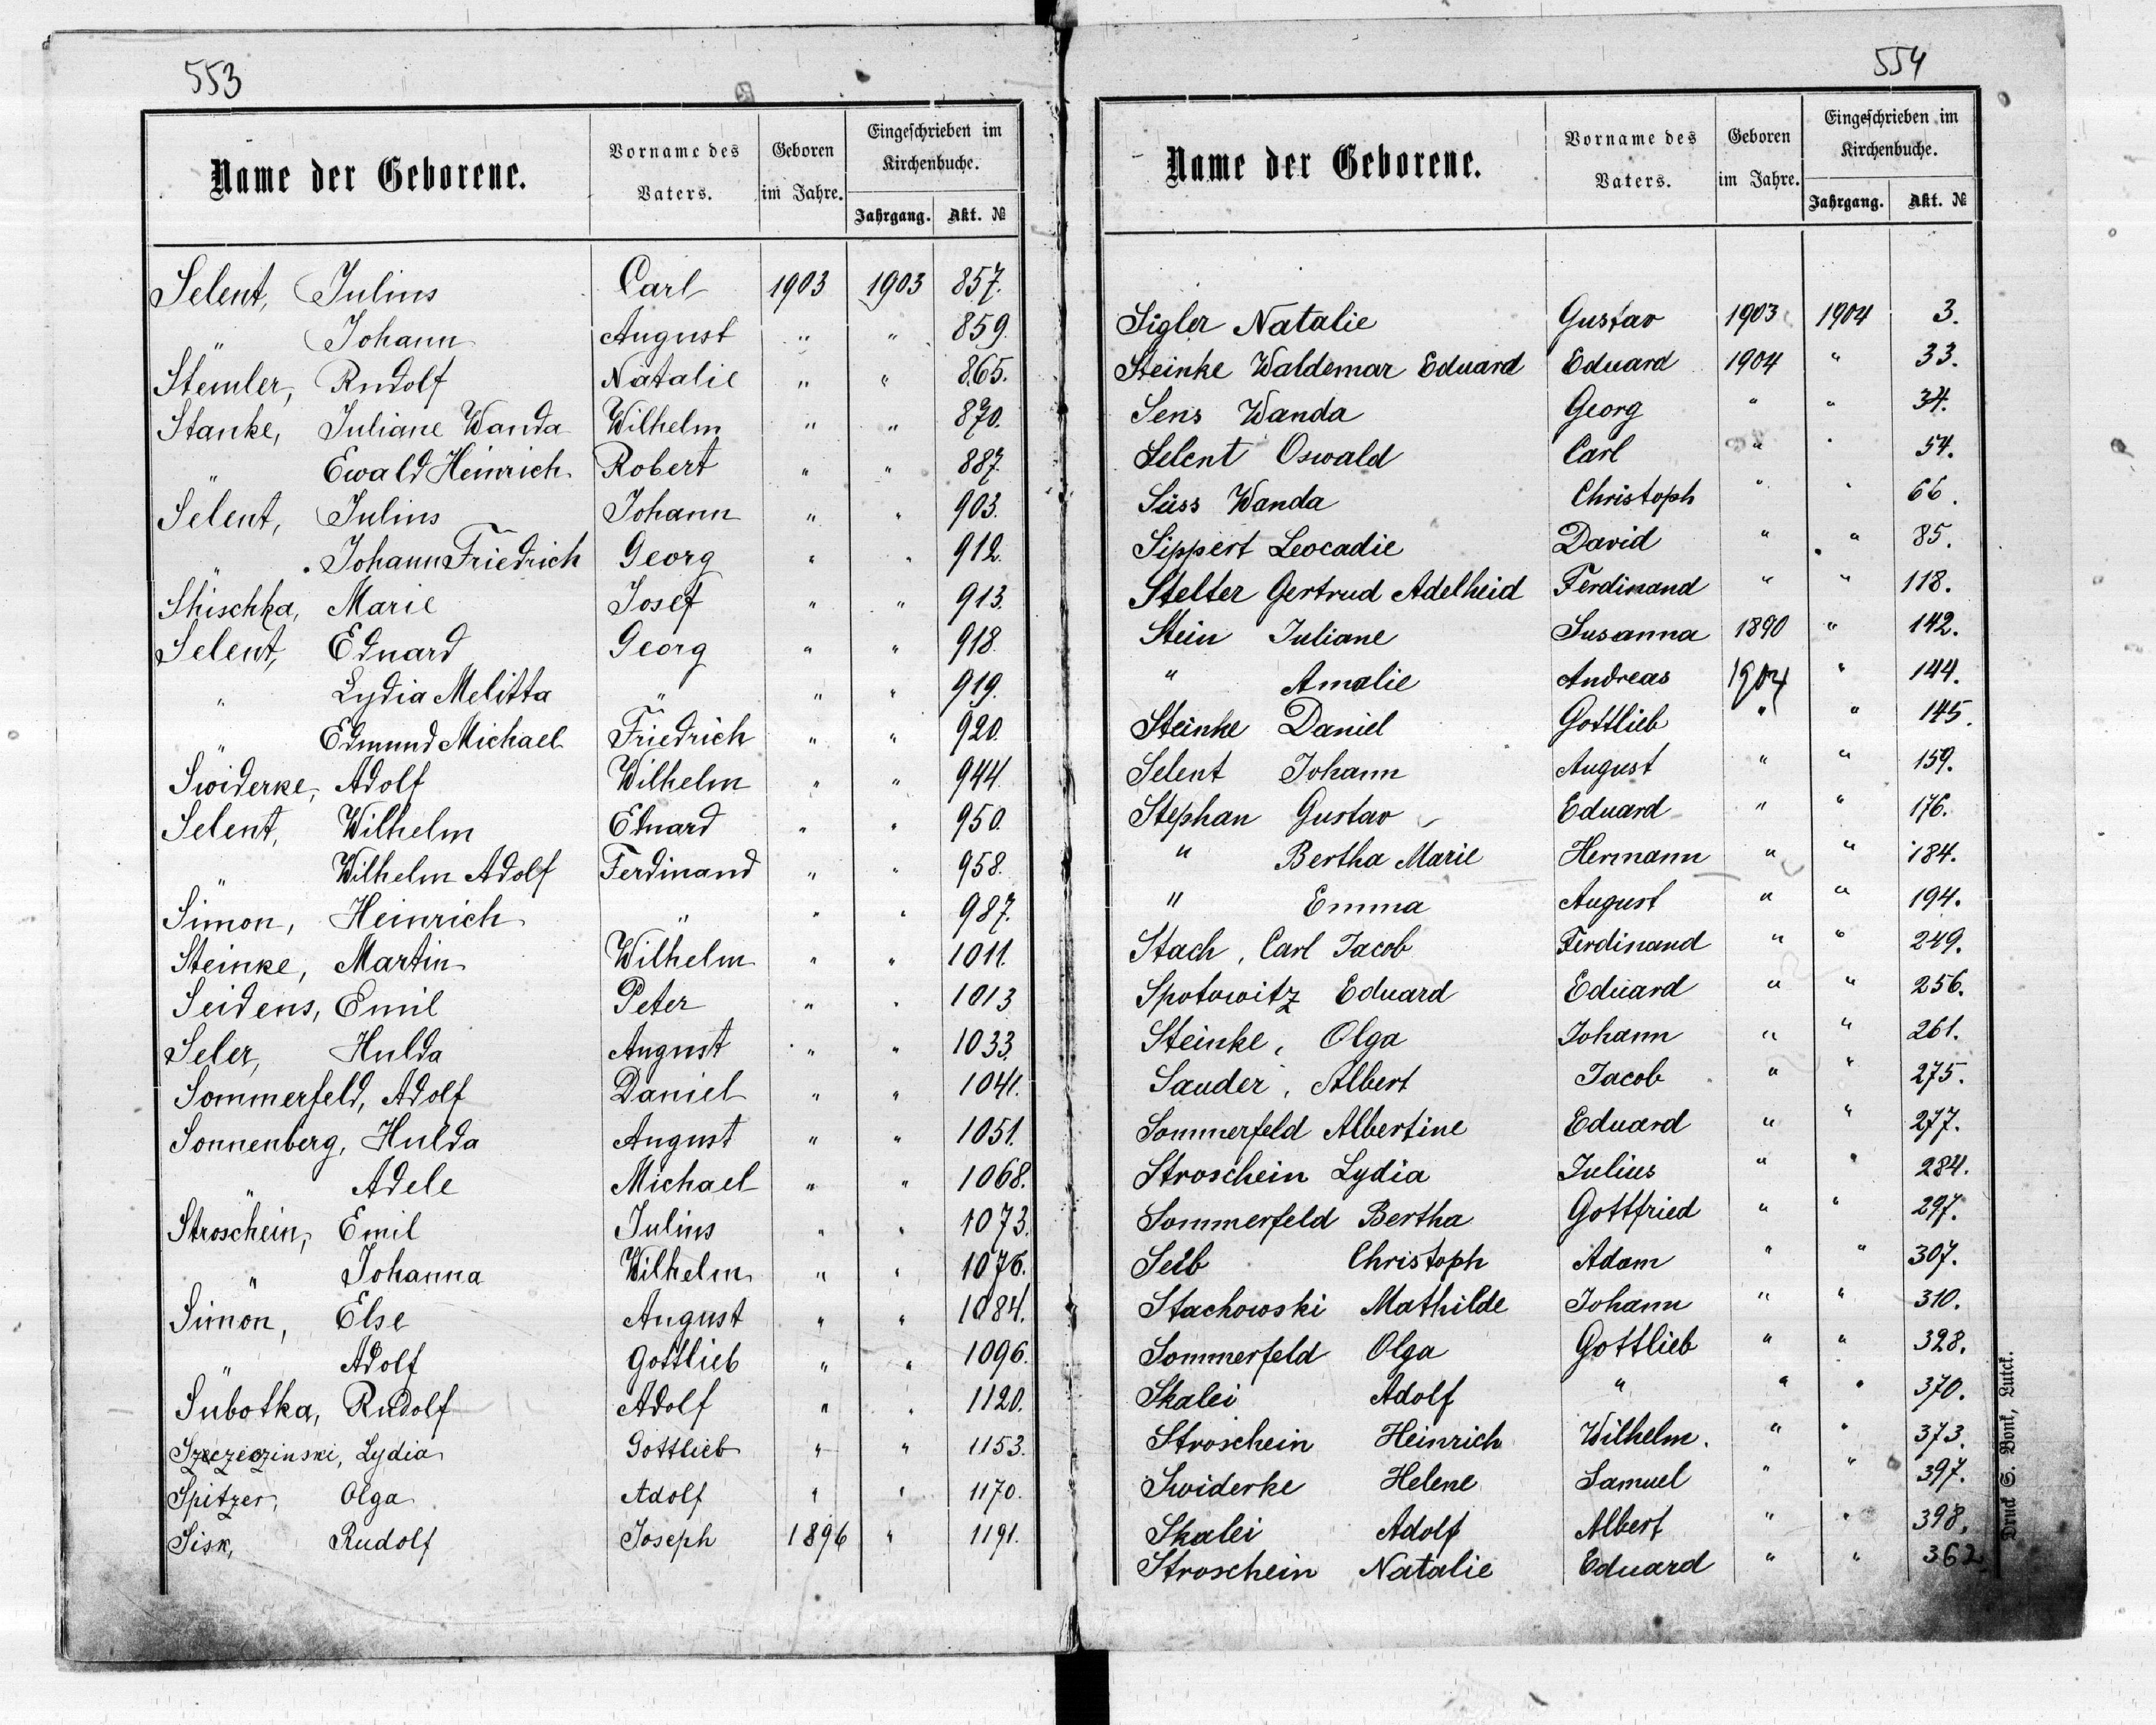 553
Name der Geborene. Vorname des Vaters. Geboren im Jahre. Eingeschrieben im Kirchenbuche. Jahrgang. Akt. №
Selent, Julius Carl 1903 1903 857.
" Johann August " " 859.
Stemler, Rudolf Natalie " " 865.
Stanke, Juliane Wanda Wilhelm " " 870.
" Ewald Heinrich Robert " " 887.
Selent, Julius Johann " " 903.
" Johann Friedrich Georg " " 912.
Shischka, Marie Josef " " 913.
Selent, Eduard Georg " " 918.
" Lydia Melitta " " " 919.
" Edmund Michael Friedrich " " 920.
Swiderke, Adolf Wilhelm " " 944.
Selent, Wilhelm Eduard " " 950.
" Wilhelm Adolf Ferdinand " " 958.
Simon, Heinrich " " " 987.
Steinke, Martin Wilhelm " " 1011.
Seidens, Emil Peter " " 1013
Seler, Hulda August " " 1033.
Sommerfeld, Adolf Daniel " " 1041.
Sonnenberg, Hulda August " " 1051.
" Adele Michael " " 1068.
Stroschein, Emil Julius " " 1073.
" Johanna Wilhelm " " 1076.
Simon, Else August " " 1084.
" Adolf Gottlieb " " 1096.
Subotka, Rudolf Adolf " " 1120.
Lydia Gottlieb " " 1153.
Spitzer, Olga Adolf " " 1170.
Sisk, Rudolf Joseph 1896 " 1191.
554
Name der Geborene. Vorname des Vaters. Geboren im Jahre. Eingeschrieben im Kirchenbuche. Jahrgang. Akt. №
Sigler Natalie Gustav 1903 1904 3.
Steinke Waldemar Eduard Eduard 1904 " 33.
Sens Wanda Georg " " 34.
Selent Oswald Carl " " 54.
Süss Wanda Christoph " " 66.
Sippert Leocadie David " " 85.
Stelter Gertrud Adelheid Ferdinand " " 118.
Stein Juliane Susanna 1890 " 142.
" Amalie Andreas 1904 " 144.
Steinke Daniel Gottlieb " " 145.
Selent Johann August " " 159.
Stephan Gustav Eduard " " 176.
" Bertha Marie Hermann " " 184.
" Emma August " " 194.
Stach, Carl Jacob Ferdinand " " 249.
Spotowitz Eduard Eduard " " 256.
Steinke, Olga Johann " " 261.
Sauder, Albert Jacob " " 275.
Sommerfeld Albertine Eduard " " 277.
Stroschein Lydia Julius " " 284.
Sommerfeld Bertha Gottfried " " 297.
Seib Christoph Adam " " 307.
Stachowski Mathilde Johann " " 310.
Sommerfeld Olga Gottlieb " " 328.
Skalei Adolf " " " 370.
Stroschein Heinrich Wilhelm. " " 373.
Swiderke Helene Samuel " " 397.
Skalei Adolf Albert " " 398.
Stroschein Natalie Eduard " " 362.
Druck S. Bonk, Lutck.